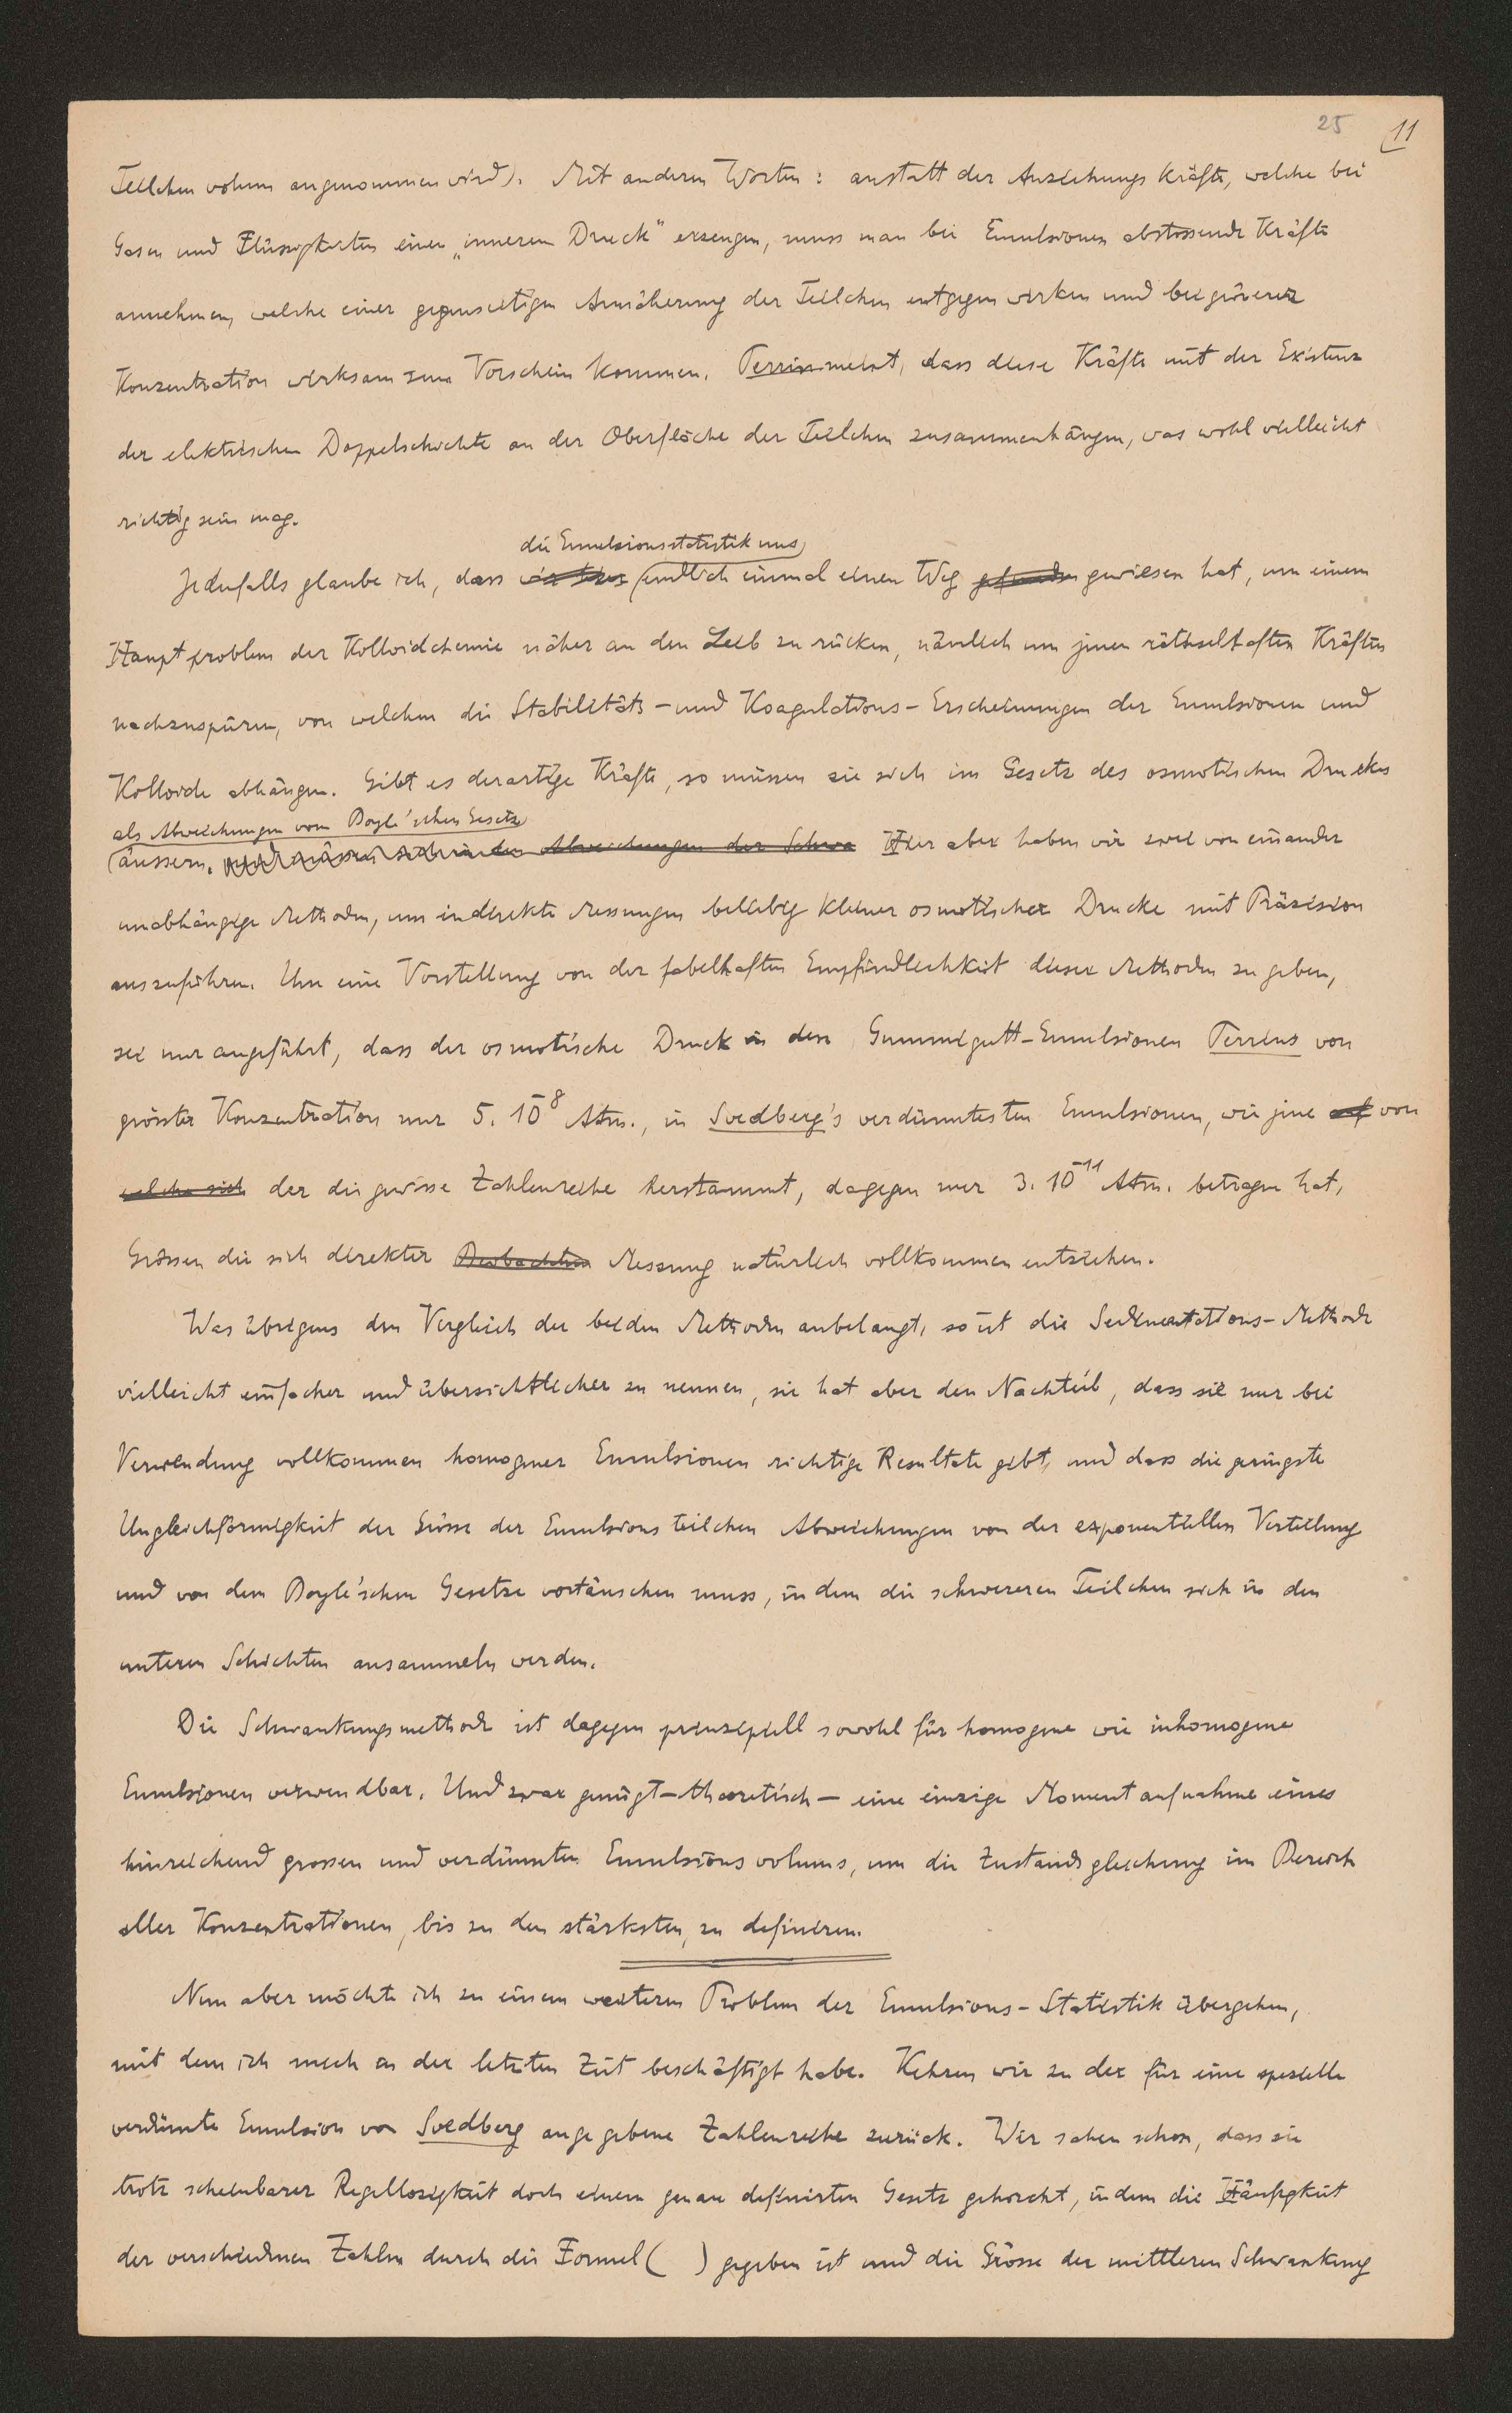 25 11
Teilchen volum angenommen wird). Mit anderen Worten: anstatt der Anziehungs Kräfte, welche bei
Gasen und Flüssigkeiten einen „inneren Druck" erzeugen, muss man bei Emulsionen abstossende Kräfte
annehmen, welche einer gegenseitigen Annäherung der Teilchen entgegen wirken und bei grösserer
Konzentration wirksam zum Vorschein kommen. Perrin meint, dass diese Kräfte mit der Existenz
der elektrischen Doppelschichte an der Oberfläche der Teilchen zusammenhängen, was wohl vielleicht
richtig sein mag.
die Emulsionsstatistik uns
Jedenfalls glaube ich, dass endlich einmal einen Weg gefunden gewiesen hat, um einem
Hauptproblem der Kolloidchemie näher an den Leib zu rücken, nämlich um jenen räthselhaften Kräften
nachzuspüren, von welchen die Stabilitäts- und Koagulations-Erscheinungen der Emulsionen und
Kolloide abhängen. Gibt es derartige Kräfte, so müssen sie sich im Gesetz des osmotischen Druckes
als Abweichungen vom Boyle'schen Gesetz
äussern. und müssen sich in den Abweichungen der Schwa Hier aber haben wir zwei von einander
unabhängige Methoden, um indirekte Messungen beliebig kleiner osmotischer Drucke mit Präzision
auszuführen. Um eine Vorstellung von der fabelhaften Empfindlichkeit dieser Methoden zu geben,
sei nur angeführt, dass der osmotische Druck in den Gummigutt-Emulsionen Perrins von
grösster Konzentration nur 5. 10⁻⁸ Atm., in Svedberg's verdünntesten Emulsionen, wie jene auf von
welche sich der die gewisse Zahlenreihe herstammt, dagegen nur 3. 10⁻¹¹ Atm. betragen hat,
Grössen die sich direkter Beobachtun Messung natürlich vollkommen entziehen.
Was übrigens den Vergleich der beiden Methoden anbelangt, so ist die Sedimentations-Methode
vielleicht einfacher und übersichtlicher zu nennen, sie hat aber den Nachteil, dass sie nur bei
Verwendung vollkommen homogener Emulsionen richtige Resultate gibt, und dass die geringste
Ungleichförmigkeit der Grösse der Emulsions teilchen Abweichungen von der exponentiellen Verteilung
und von dem Boyle'schen Gesetze vortäuschen muss, in dem die schwereren Teilchen sich in den
unteren Schichten ansammeln werden.
Die Schwankungsmethode ist dagegen prinzipiell sowohl für homogene wie inhomogene
Emulsionen verwendbar. Und zwar genügt - theoretisch - eine einzige Moment aufnahme eines
hinreichend grossen und verdünnten Emulsions volums, um die Zustandsgleichung im Bereich
aller Konzentrationen, bis zu den stärksten, zu definieren.
Nun aber möchte ich zu einem weiteren Problem der Emulsions-Statistik übergehen,
mit dem ich mich in der letzten Zeit beschäftigt habe. Kehren wir zu der für eine spezielle
verdünnte Emulsion von Svedberg angegebene Zahlenreihe zurück. Wir sahen schon, dass sie
trotz scheinbarer Regellosigkeit doch einem genau definirten Gesetz gehorcht, indem die Häufigkeit
der verschiedenen Zahlen durch die Formel ( ) gegeben ist und die Grösse der mittleren Schwankung